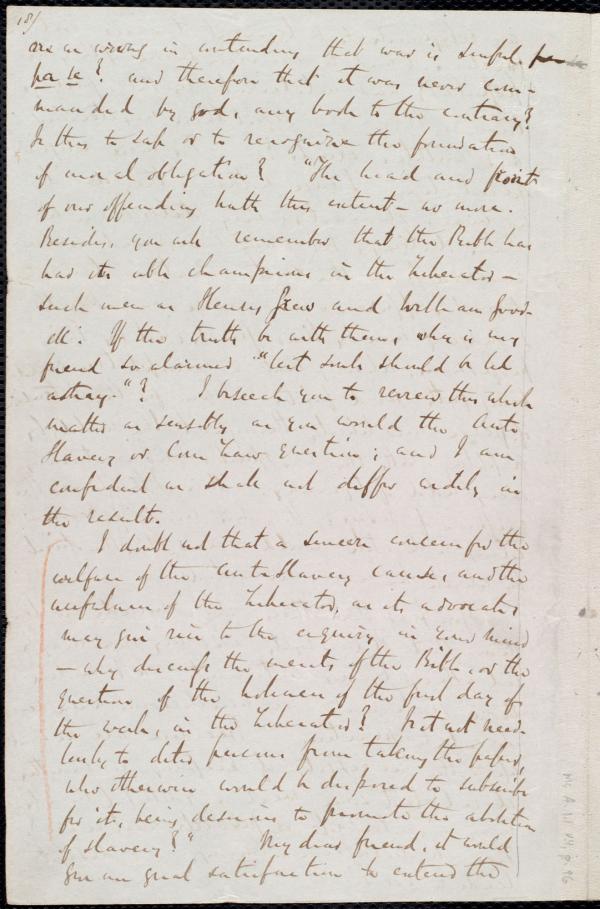 18/
we are wrong in contending that war is sinful per
per se? and therefore that it was never com-
manded by God, any book to the contrary?
Is this to sap or to recognize the foundation
of moral obligation? "The head and front
of our offending hath this extent — no more.
Besides, you will remember that the Bible has
had its able champions in the Liberator —
such men as Henry Grew and William Good-
ell. If the truth be with them, why is my
friend so alarmed "lest souls should be led
astray."? I beseech you to review this whole
matter as sensibly as you would the Anti
Slavery or Corn Law question; and I am
confident we shall not differ widely in
the result.
I doubt not that a sincere concern for the
welfare of the Anti Slavery cause, and the
usefulness of the Liberator, as its advocate,
may give rise to the enquiry in your mind
— why discuss the merits of the Bible, or the
question of the holiness of the first day of
the week, in the Liberator? Is it not need-
lessly to deter persons from taking the paper,
who otherwise would be disposed to subscribe
for it, being desirous to promote the abolition
of slavery?" My dear friend, it would
give me great satisfaction to extend the
Ms A.1.1 V4, p.96